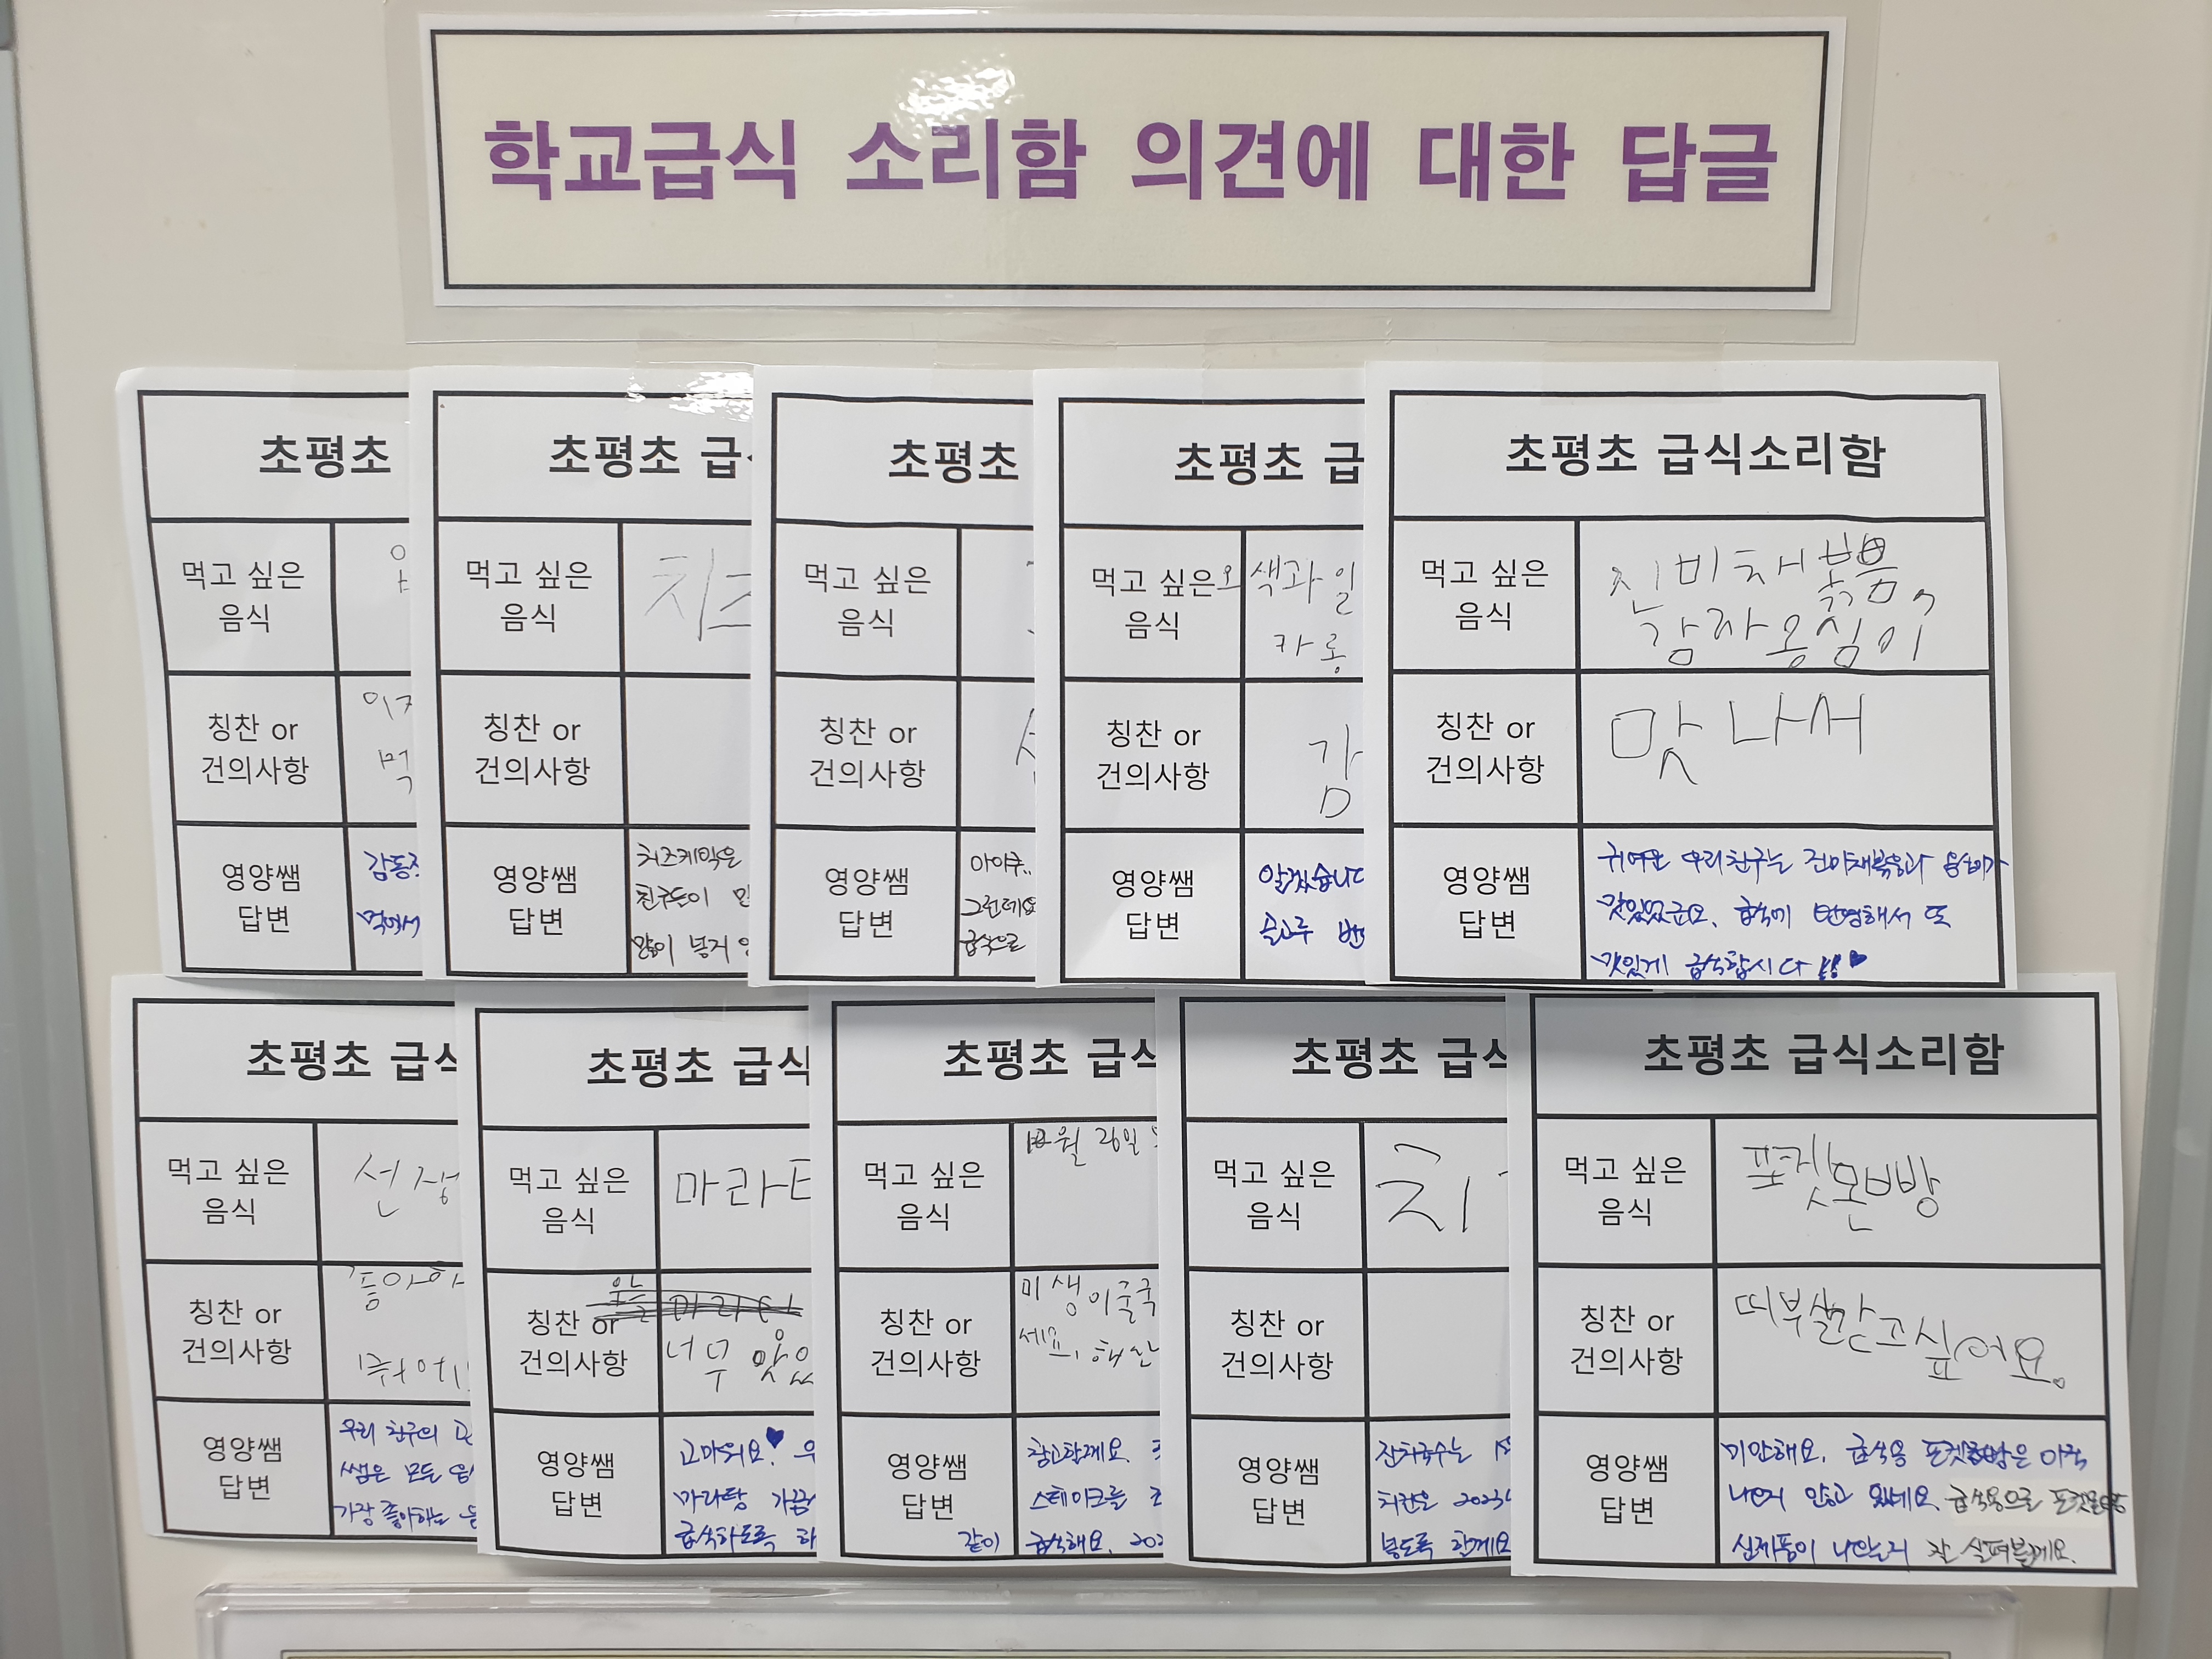 학교급식 소리함 의견에 대한 답글
초평초
먹고 싶은
음식
칭찬 or
건의사항
먹
영양쌤
답변
먹어서
초평초 급
먹고 싶은
음식
치즈
칭찬 or
건의사항
영양쌤
답변
치즈케익은
친구들이
많이
초평초
먹고 싶은
음식
칭찬 or
건의사항
영양쌤
답변
아이쿠..
그런데요
급식으로
초평초 급
먹고 싶은
음식
오색과일
카롱
칭찬 or
건의사항
감
영양쌤
답변
알겠습니다
골고루
초평초 급식소리함
먹고 싶은
음식
진미채볶음,
감자옹심이
칭찬 or
건의사항
맛나서
영양쌤
답변
귀여운 우리친구는 진미채볶음과 옹심이가
맛있었군요. 급식에 반영해서 또
맛있게 급식합시다 ♥
초평초 급식
먹고 싶은
음식
선생
칭찬 or
건의사항
영양쌤
답변
우리 친구의
쌤은 모든 음
가장 좋아하는
초평초 급식
먹고 싶은
음식
마라
칭찬 or
건의사항
너무 맛있
영양쌤
답변
고마워요♥ 우
마라탕 가끔
급식하도록 하
초평초 급식
먹고 싶은
음식
월 26일
칭찬 or
건의사항
미생이굴국
세요, 해산
영양쌤
답변
참고할께요.
스테이크를
같이 급식해요. 202
초평초 급식
먹고 싶은
음식
치
칭찬 or
건의사항
영양쌤
답변
잔치국수는
치킨은 2023
보도록 할게요
초평초 급식소리함
먹고 싶은
음식
포켓몬빵
칭찬 or
건의사항
띠부실갇고싶어요.
영양쌤
답변
미안해요. 급식용 포켓몬빵은 아직
나오지 않고 있네요. 급식용으로 포켓몬빵
신제품이 나오는지 잘 살펴볼게요.